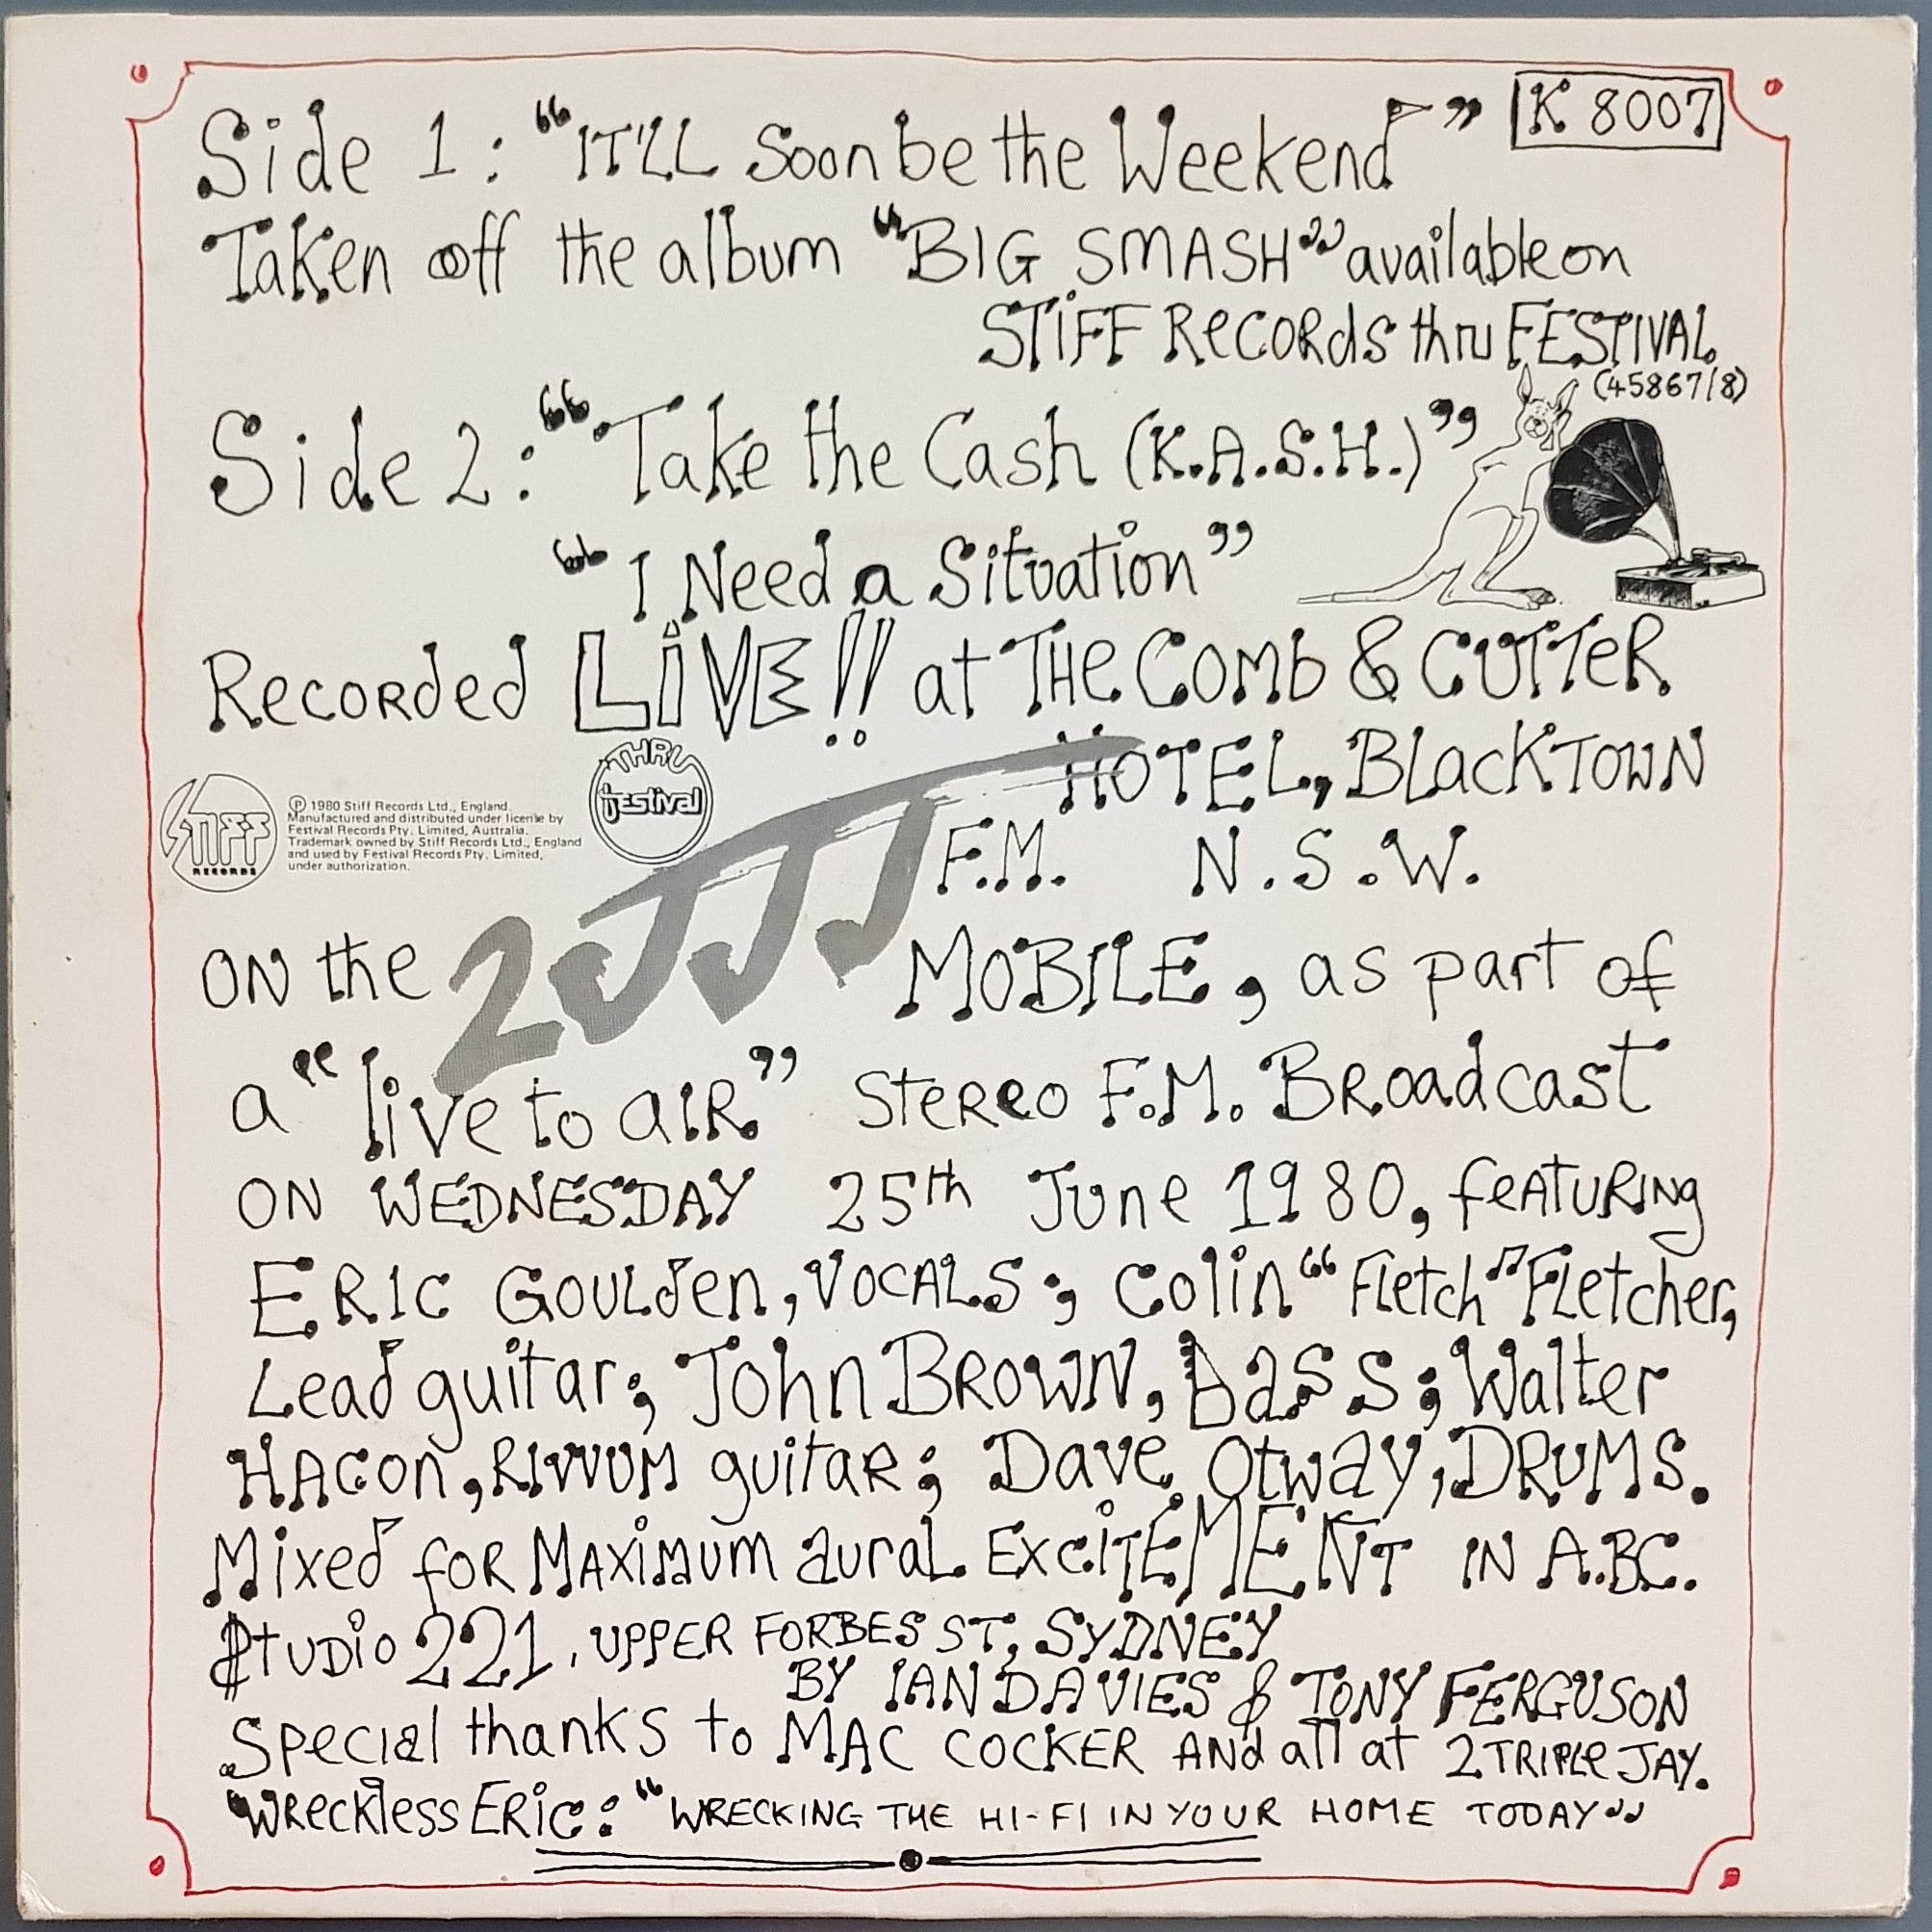 Side 1: "IT'LL Soon be the Weekend" K 8007
Taken off the album "BIG SMASH" available on
STiFF Records thru FESTIVAL
(45867/8)
Side 2: "Take the Cash (K.A.S.H.)"
"I Need a Situation"
Recorded LiVE!! at THe Comb & CUTTeR
HOTEL, BlackTOWN
THRU
festival
STIFF
RECORDS
Ⓟ 1980 Stiff Records Ltd., England.
Manufactured and distributed under license by
Festival Records Pty. Limited, Australia.
Trademark owned by Stiff Records Ltd., England
and used by Festival Records Pty. Limited,
under authorization.
F.M. N.S.W.
ON the 2JJJ MOBILE, as part of
a "live to aIR" Stereo F.M. BRoadcast
ON WEDNESDAY 25th June 1980, feATURING
ERIC GOULden, VOCALS; Colin "Fletch" FLetcher,
Lead guitar; John BROWN, bass; Walter
HACON, RIVVUM guitaR; Dave Otway, DRUMS.
Mixed foR MAXiMum aural ExciTEMENT IN A.BC.
StUDiO 221, UPPER FORBES ST, SYDNEY
BY IAN DAVIES & TONY FERGUSON
Special thanks to MAC COCKER ANd all at 2 TRIPLe JAY.
WReckless ERic: "WRECKING THE HI-FI IN YOUR HOME TODAY"